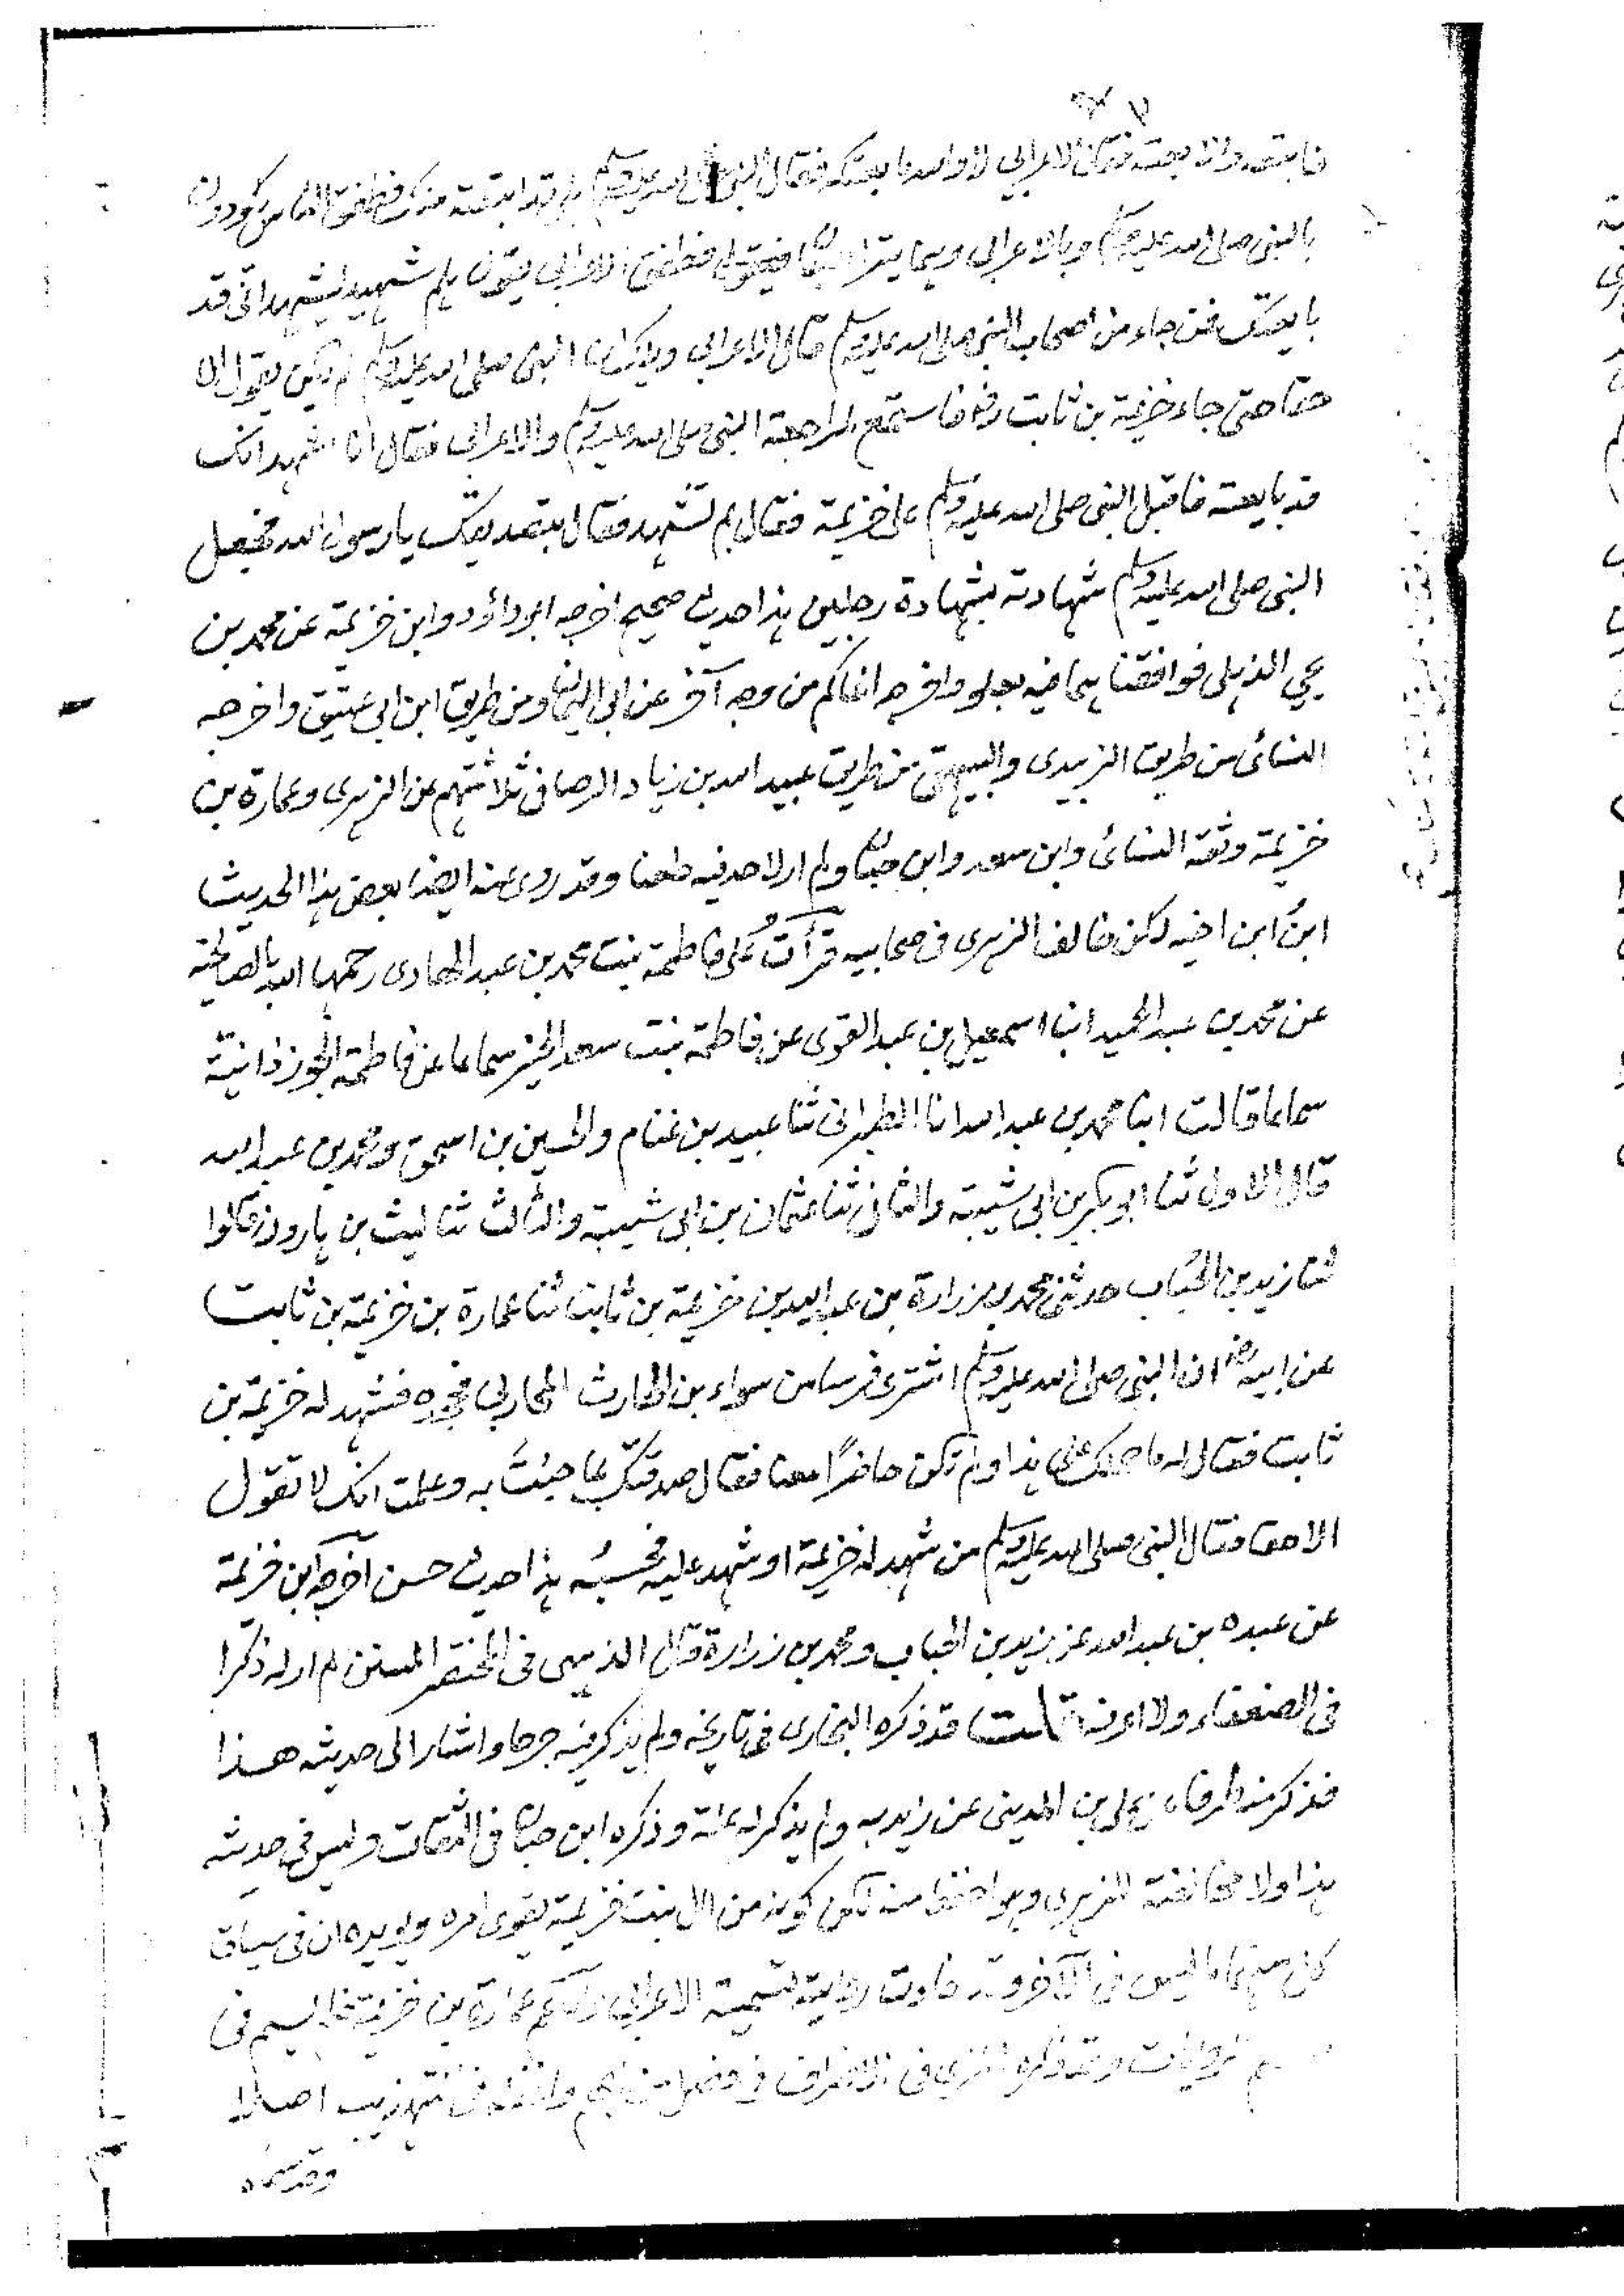 فابتعه والا بعته فقال الاعرابي لا والله ما بعتكه فقال النبي صلى الله عليه وسلم بلى قد ابتعته منك فطفق الناس يلوذون
بالنبي صلى الله عليه وسلم وبالاعرابي وهما يتراجعان فطفق الاعرابي يقول هلم شهيدا يشهد اني قد
بايعتك فمن جاء من اصحاب النبي صلى الله عليه وسلم قال للاعرابي ويلك ان النبي صلى الله عليه وسلم لم يكن يقول الا
حقا حتى جاء خزيمة بن ثابت رض فاستمع لمراجعة النبي صلى الله عليه وسلم والاعرابي فقال انا اشهد انك
قد بايعته فاقبل النبي صلى الله عليه وسلم على خزيمة فقال بم تشهد فقال بتصديقك يا رسول الله فجعل
النبي صلى الله عليه وسلم شهادته بشهادة رجلين هذا حديث صحيح اخرجه ابو داؤد وابن خزيمة عن محمد بن
يحيى الذهلي فوافقناهما فيه بعلو واخرجه الحاكم من وجه آخر عن ابي اليمان ومن طريق ابن ابي عتيق واخرجه
النسائي من طريق الزبيدي والبيهقي من طريق عبيد الله بن زياد الرصافي ثلاثتهم عن الزهري وعمارة بن
خزيمة وثقه النسائي وابن سعد وابن حبان ولم ار لاحد فيه طعنا وقد روى عنه ايضا بعض هذا الحديث
ابن ابن اخيه لكن خالف الزهري في صحابيه قرأت على فاطمة بنت محمد بن عبد الهادي رحمها الله بالصالحية
عن محمد بن عبد الحميد انبا اسمعيل بن عبد القوي عن فاطمة بنت سعد الخير سماعا عن فاطمة الجوزذانية
سماعا قالت انبا محمد بن عبد الله انا الطبراني ثنا عبيد بن غنام والحسين بن اسحق ومحمد بن عبد الله
قال الاول ثنا ابو بكر بن ابي شيبة والثاني ثنا عثمان بن ابي شيبة والثالث ثنا ليث بن هارون قالوا
ثنا زيد بن الحباب حدثني محمد بن زرارة بن عبد الله بن خزيمة بن ثابت ثنا عمارة بن خزيمة بن ثابت
عن ابيه رض ان النبي صلى الله عليه وسلم اشترى فرسا من سواء بن الحارث المحاربي فجحده فشهد له خزيمة بن
ثابت فقال له ما حملك على هذا ولم تكن حاضرًا معنا فقال صدقتك بما جئت به وعلمت انك لا تقول
الا حقا فقال النبي صلى الله عليه وسلم من شهد له خزيمة او شهد عليه فحسبه هذا حديث حسن اخرجه ابن خزيمة
عن عبده بن عبد الله عن زيد بن الحباب ومحمد بن زرارة قال الذهبي في مختصر السنن لم ار له ذكرا
في الضعفاء ولا اعرفه قلت قد ذكره البخاري في تاريخه ولم يذكر فيه جرحا واشار الى حديثه هذا
فذكر منه طرفا عن علي بن المديني عن زيد به ولم يذكر له علة وذكره ابن حبان في الثقات وليس في حديثه
هذا ولا مخالفة للزهري وهو احفظ منه لكن كونه من آل بيت خزيمة يقوي امره ويؤيده ان في سياق
كل منهما ما ليس في الآخر وقد فاوت رواية تسمية الاعرابي عمارة بن خزيمة في
وقد ذكره المزي في الاطراف في التهذيب اصلا